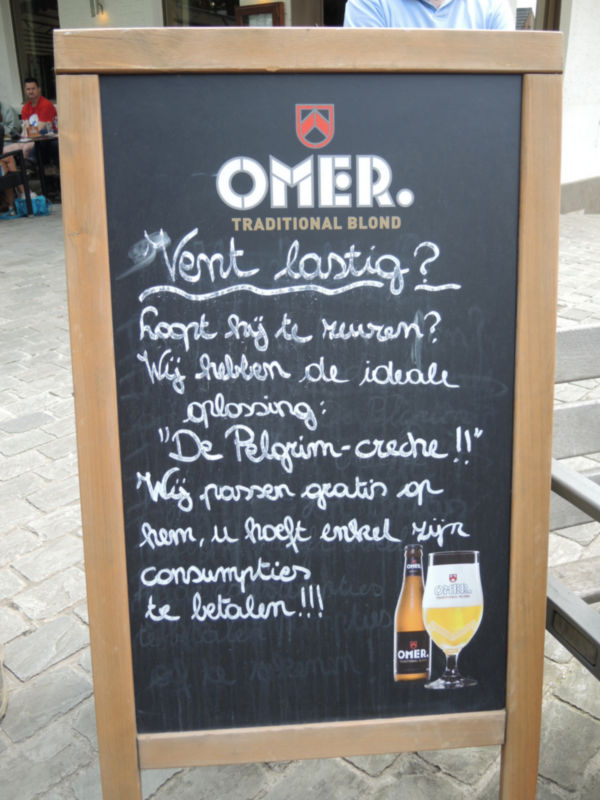 OMER.
TRADITIONAL BLOND
Vent lastig?
Loopt hij te zeuren?
Wij hebben de ideale
oplossing:
"De Pelgrim-creche!!"
Wij passen gratis op
hem, u hoeft enkel zijn
consumpties
te betalen!!!
OMER.
OMER.
TRADITIONAL BLOND
OMER.
TRADITIONAL BLOND